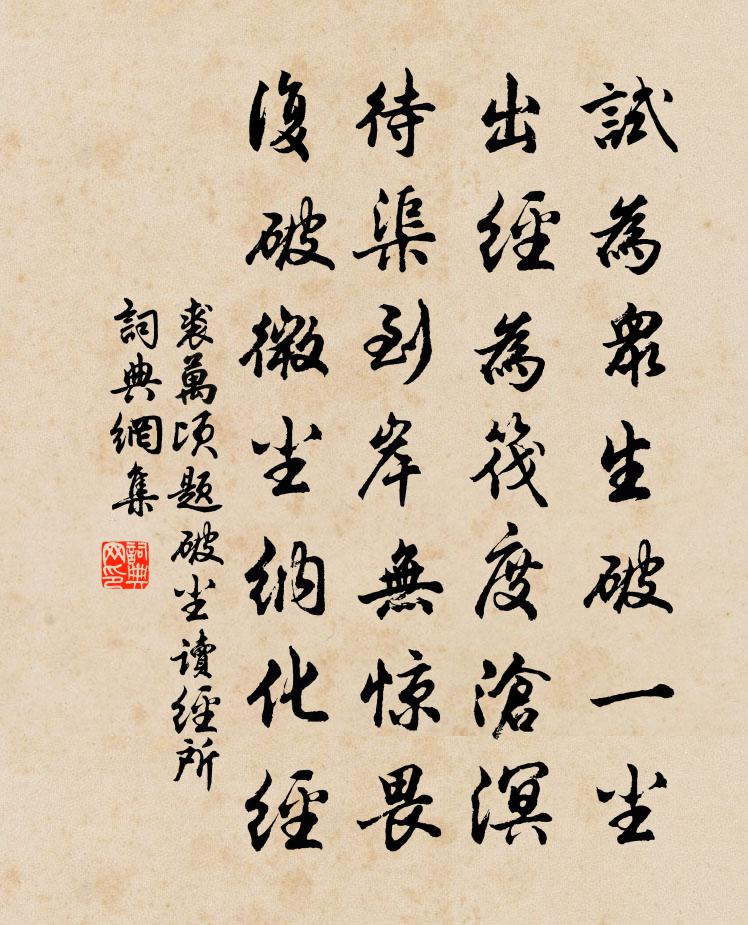 試為眾生破一尘
出經為筏度滄溟
待渠到岸無惊畏
復破微尘納化經
裘萬頃题破尘讀經所
詞典網集
詞典网印